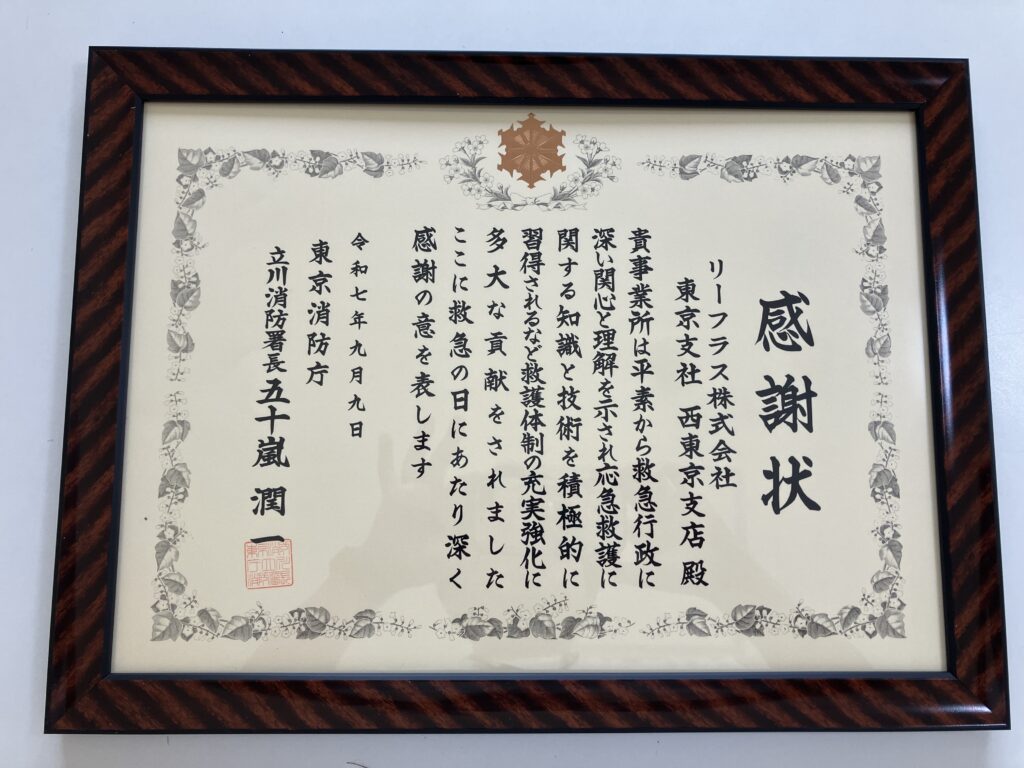 感謝状
リーフラス株式会社
東京支社 西東京支店 殿
貴事業所は平素から救急行政に
深い関心と理解を示され応急救護に
関する知識と技術を積極的に
習得されるなど救護体制の充実強化に
多大な貢献をされました
ここに救急の日にあたり深く
感謝の意を表します
令和七年九月九日
東京消防庁
立川消防署長 五十嵐 潤一